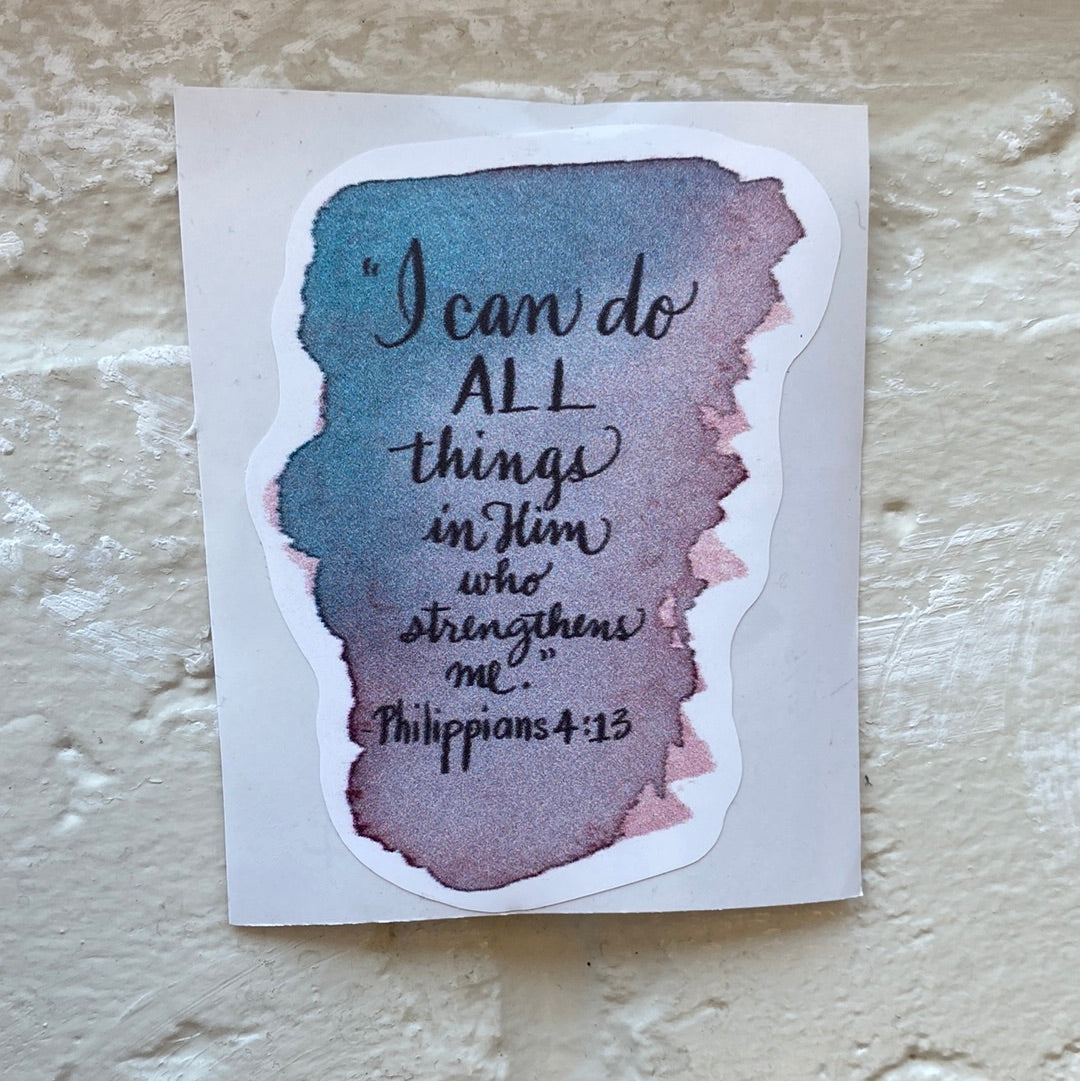 “I can do
ALL
things
in Him
who
strengthens
me.”
-Philippians 4:13